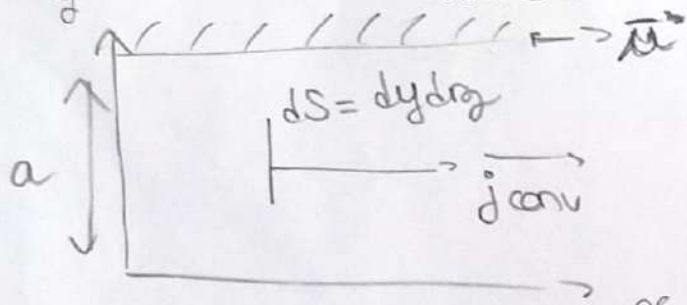 y
u
dS = dydz
j conv
a
x